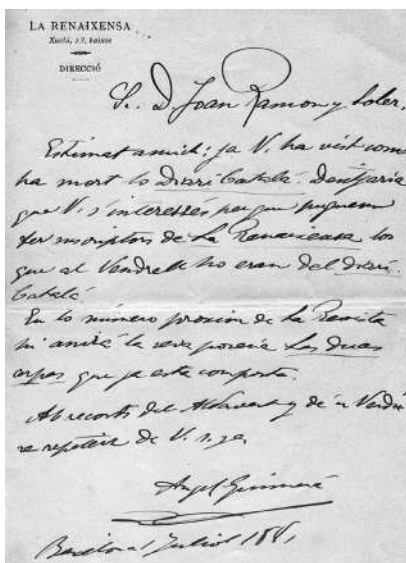 LA RENAIXENSA
Xuclá, 13, baixos
DIRECCIÓ
Sr. D. Joan Ramon y Soler.
Estimat amich: ja V. ha vist com
ha mort lo Diari Catalá. Desitjaria
que V. s'interessés per que poguem
fer suscriptors de La Renaixensa los
que al Vendrell ho eran del diari
Catalá
En lo número proxim de La Revista
hi anirá la seva poesia Las duas
arpas que ja està composta.
Ab recorts del Aldavert y de'n Verdú
se repeteix de V. s. ss.
Angel Guimerá
Barcelona 1 Juliol 1881